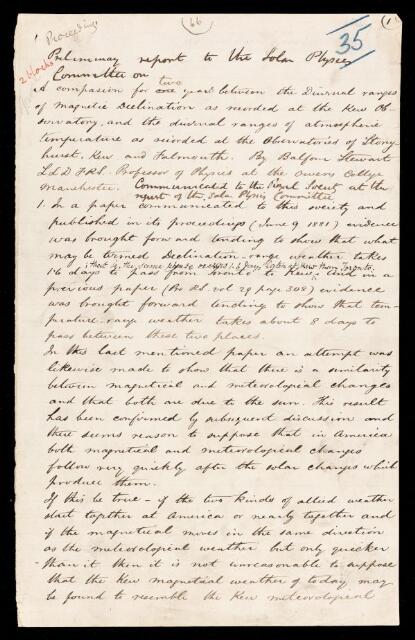 Proceedings
(66
(1
35
2 blocks
Preliminary report to the Solar Physics
Committee on
two
A comparison for one years between the Diurnal ranges
of magnetic Declination as recorded at the Kew Ob-
servatory, and the diurnal ranges of atmospheric
temperature as recorded at the Observatories of Stony-
hurst, Kew and Falmouth. By Balfour Stewart
L.L.D F.R.S. Professor of Physics at the Owens College
Manchester. Communicated to the Royal Society at the
request of the Solar Physics Committee
1. In a paper communicated to this society and
published in its proceedings (June 9 1881) evidence
was brought forward tending to show that what
may be termed Declination-range weather takes
1.6 days from Toronto to Kew, and in a
previous paper (Pro RS vol 29 page 308) evidence
was brought forward tending to show that tem-
perature-range weather takes about 8 days to
pass between these two places.
In this last mentioned paper an attempt was
likewise made to show that there is a similarity
between magnetical and meteorological changes
and that both are due to the sun. This result
has been confirmed by subsequent discussion and
there seems reason to suppose that in America
both magnetical and meteorological changes
follow very quickly after the solar changes which
produce them.
If this be true - if the two kinds of allied weather
start together at America or nearly together and
if the magnetical moves in the same direction
as the meteorological weather but only quicker
than it then it is not unreasonable to suppose
that the Kew magnetical weather of today may
be found to resemble the Kew meteorological